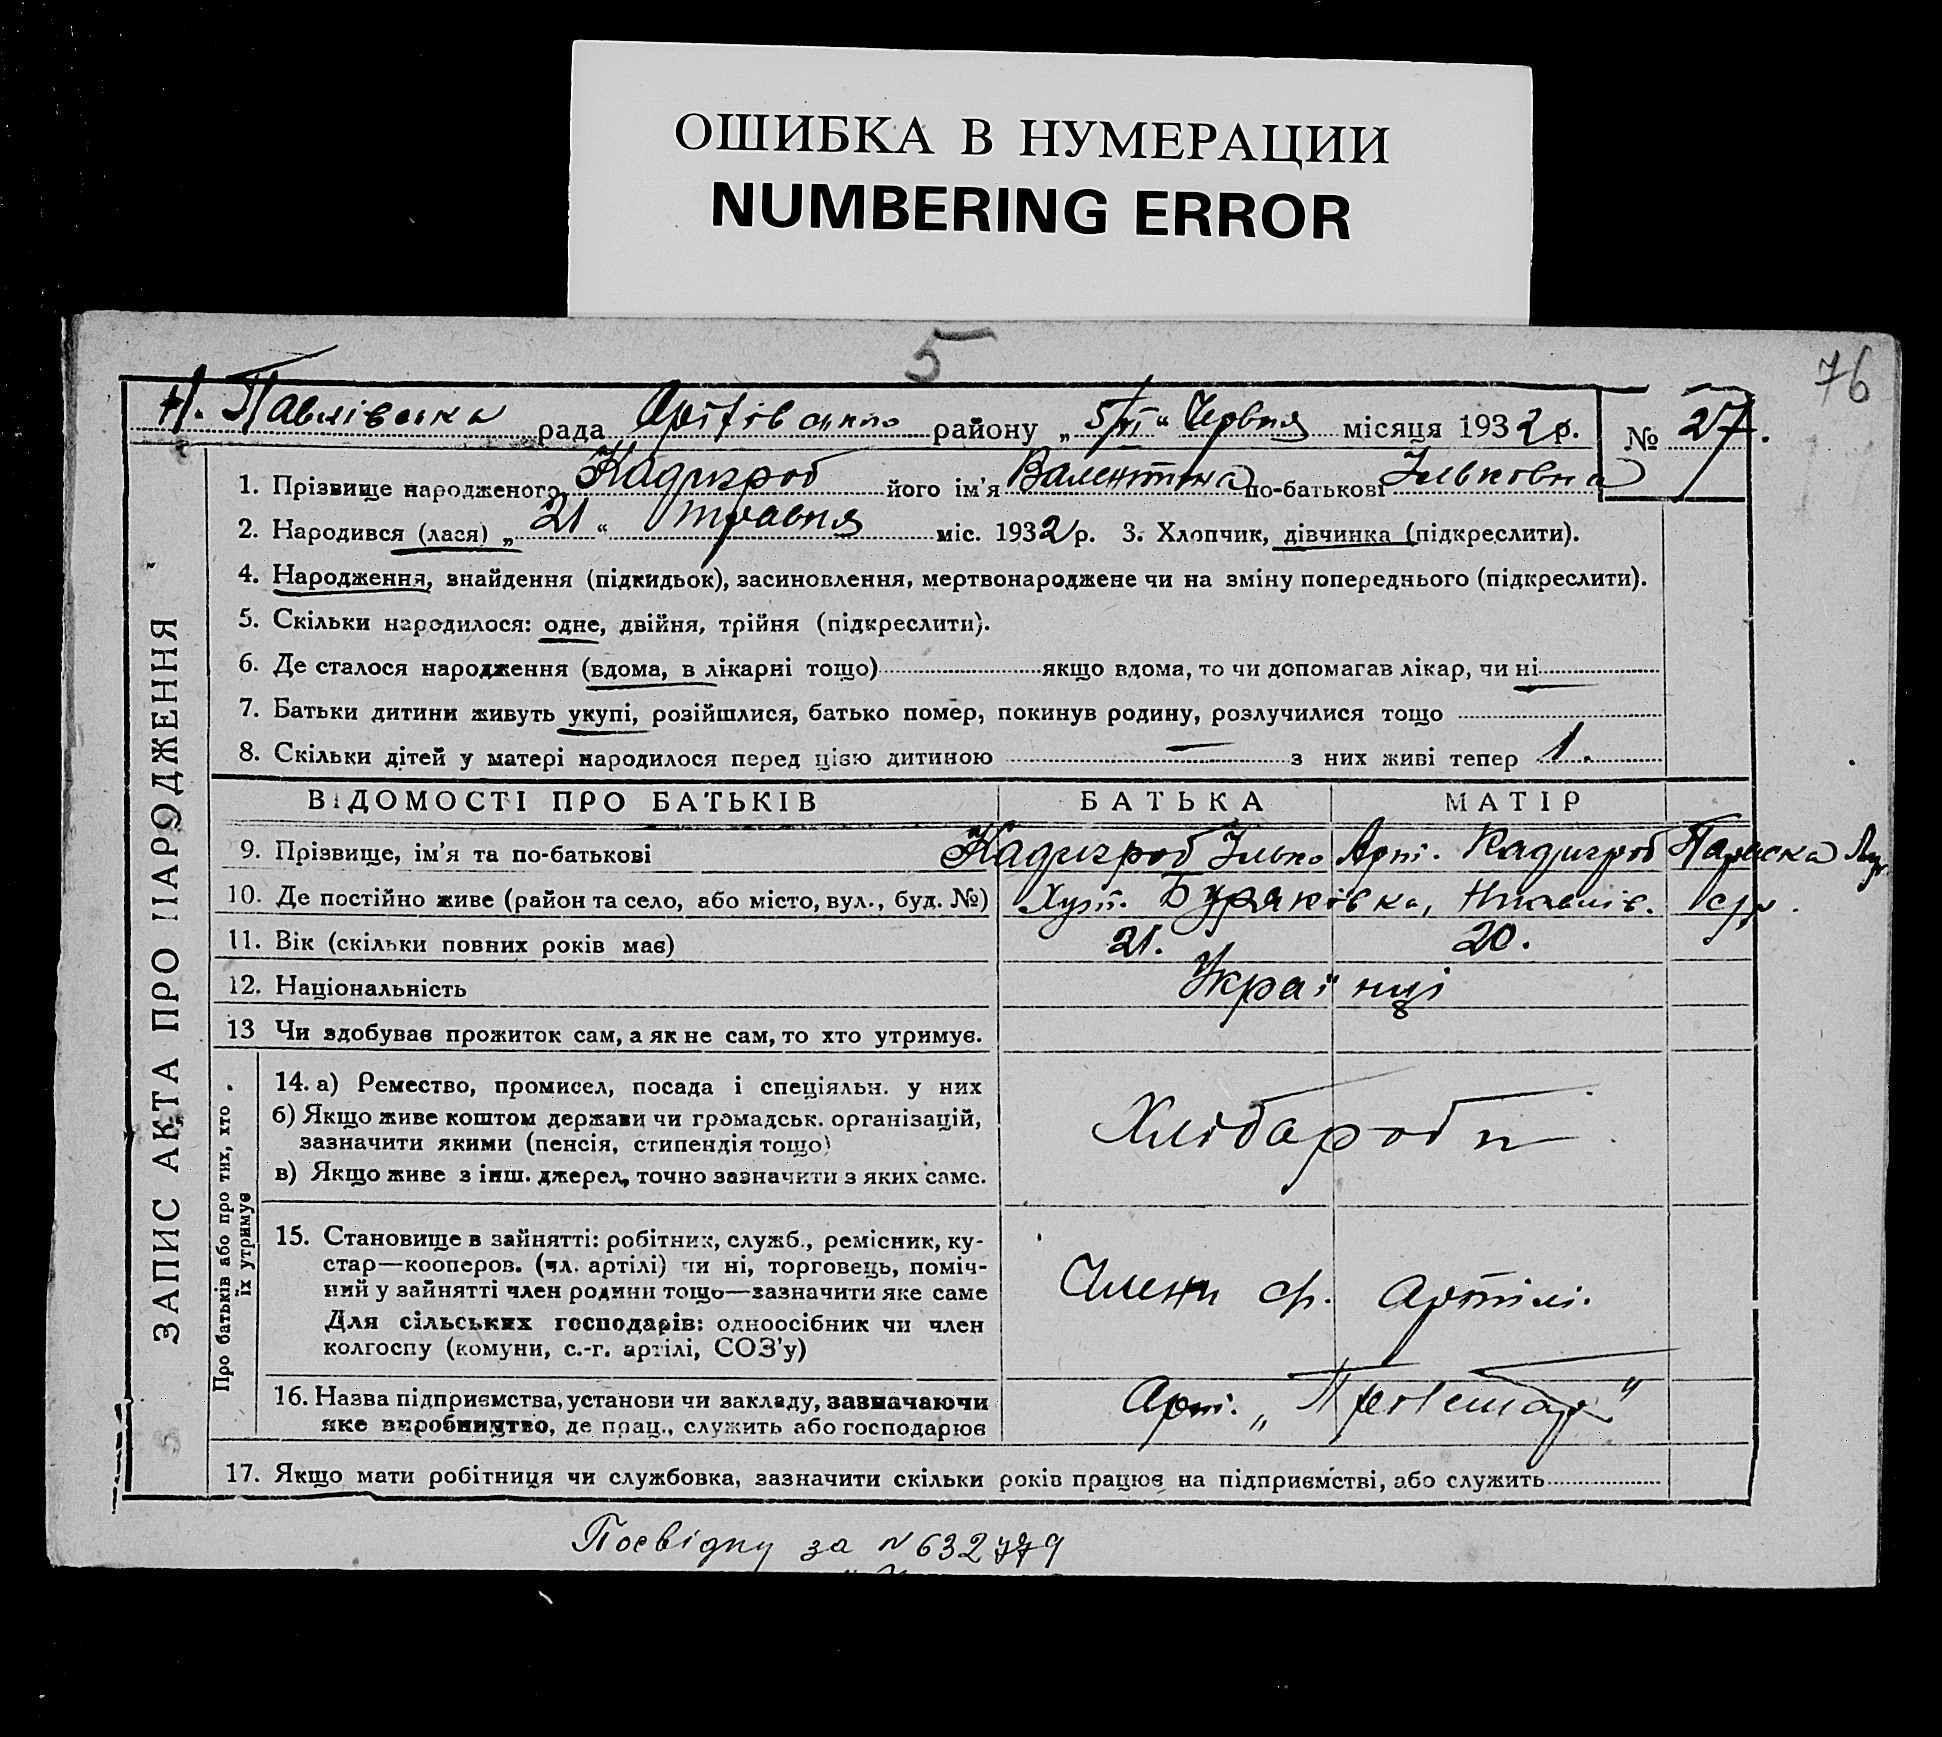 ОШИБКА В НУМЕРАЦИИ
NUMBERING ERROR
5
76
Н. Павлівська рада Артівського району „5/VI“ Червня місяця 1932 р. № 27.
1. Прізвище народженого Кадигроб його ім’я Валентина по-батькові Ільковна
2. Народився (лася) „21“ травня міс. 1932 р. 3. Хлопчик, дівчинка (підкреслити).
4. Народження, знайдення (підкидьок), засиновлення, мертвонароджене чи на зміну попереднього (підкреслити).
5. Скільки народилося: одне, двійня, трійня (підкреслити).
6. Де сталося народження (вдома, в лікарні тощо) якщо вдома, то чи допомагав лікар, чи ні
7. Батьки дитини живуть укупі, розійшлися, батько помер, покинув родину, розлучилися тощо
8. Скільки дітей у матері народилося перед цією дитиною — з них живі тепер 1.
ВІДОМОСТІ ПРО БАТЬКІВ БАТЬКА МАТІР
9. Прізвище, ім’я та по-батькові Кадигроб Ілько Арт. Кадигроб Параска
10. Де постійно живе (район та село, або місто, вул., буд. №) Хут. Буряківка, Н Павлів. с/р.
11. Вік (скільки повних років має) 21. 20.
12. Національність Українці
13 Чи здобуває прожиток сам, а як не сам, то хто утримує.
14. а) Ремество, промисел, посада і спеціяльн. у них
б) Якщо живе коштом держави чи громадськ. організацій,
зазначити якими (пенсія, стипендія тощо)
в) Якщо живе з інш. джерел, точно зазначити з яких саме.
Хлібароби
15. Становище в зайнятті: робітник, служб., ремісник, ку-
стар—кооперов. (чл. артілі) чи ні, торговець, поміч-
ний у зайнятті член родини тощо—зазначити яке саме
Для сільських господарів: одноосібник чи член
колгоспу (комуни, с.-г. артілі, СОЗ’у)
Члени с/г. Артілі.
16. Назва підприємства, установи чи закладу, зазначаючи
яке виробництво, де прац., служить або господарює
Арт. „Пролетар“
17. Якщо мати робітниця чи службовка, зазначити скільки років працює на підприємстві, або служить
ЗАПИС АКТА ПРО НАРОДЖЕННЯ
Про батьків або про тих, хто
їх утримує
Посвідку за № 632779